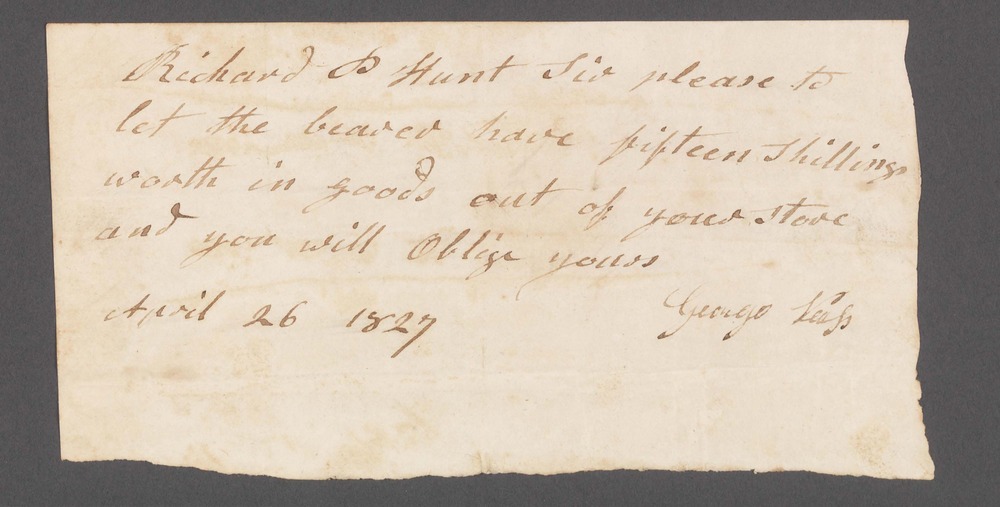 Richard P Hunt Sir please to
let the bearer have fifteen Shillings
worth in goods out of your Store
and you will Oblige yours
April 26 1827 George